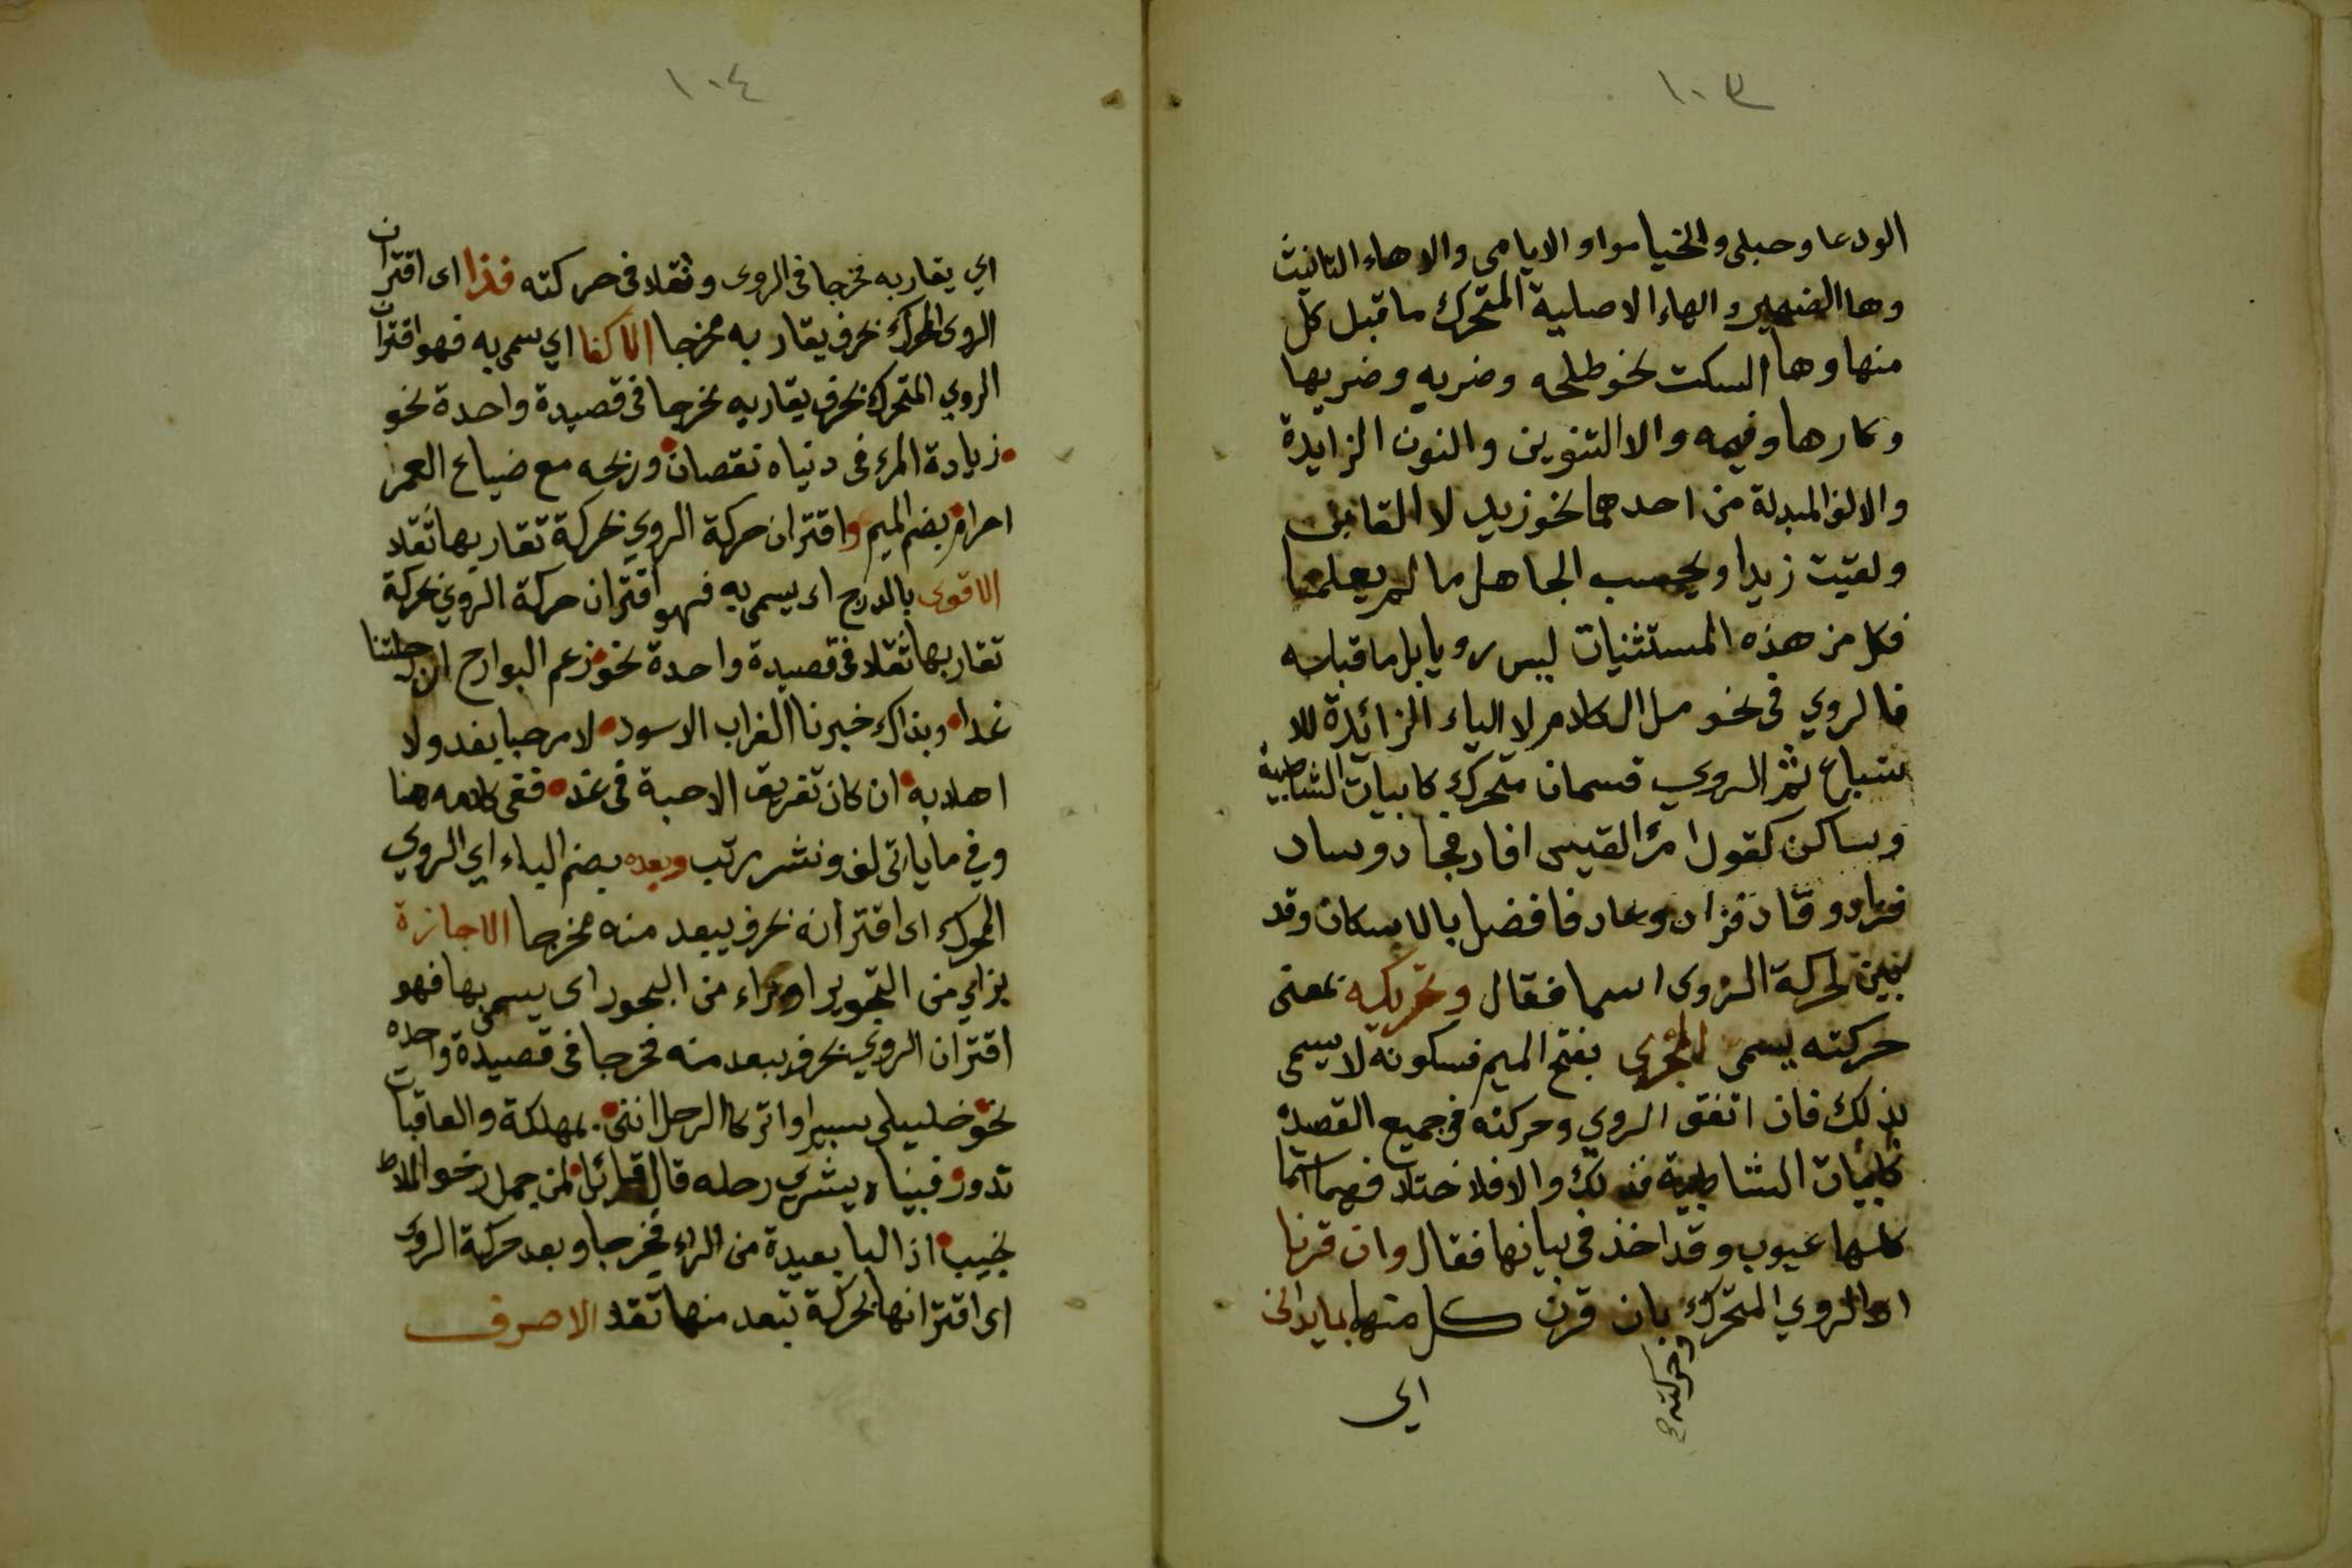 ١٠٣
الودعا وحبلى والخيامو او الايامى والا هاء التانيث
وها الضمير والهاء الاصلية المتحرك ما قبل كل
منها وها السكت نحو طلحه وضربه وضربها
وكارها وفيمه والا التنوين والنون الزايدة
والالف المبدلة من احدهما نحو زيد لا القانن
ولقيت زيدا ويحسب الجاهل ما لم يعلما
فكل من هذه المستثنيات ليس رويا بل ما قبله
فالروي في نحو مل الكلام لا الياء الزائدة للا
شباع ثم الروي قسمان متحرك كابيات الشاطبية
وساكن كقول امرئ القيس افاد فجاد وساد
فزاد وقاد فزاد وعاد فافضل بالاسكان وقد
بين لحركة الروى اسما فقال وتحريكه بمعنى
حركته يسمى المجرى بفتح الميم فسكونه لا يسمى
بذلك فان اتفق الروي وحركته في جميع القصيده
كابيات الشاطبية فذلك والا فلاختلافهما اسما
كلها عيوب وقد اخذ في بيانها فقال وان قرنا
اى الروي المتحرك وحركته بان قرن كل منهما بما يدانى
اي
١٠٤
اي يقاربه مخرجا في الروى وثقلا في حركته فذا اى اقتران
الروى المحرك بحرف يقاربه مخرجا الاكفا اي سمى به فهو اقتران
الروي المتحرك بحرف يقاربه مخرجا في قصيدة واحدة نحو
زيادة المرء في دنياه نقصان وربحه مع ضياع العمر
احرام بضم الميم واقتران حركة الروي بحركة تقاربها ثقلا
الاقوى بالدرج اى يسمى به فهو اقتران حركة الروي بحركة
تقاربها ثقلا في قصيدة واحدة نحو زعم البوارح ان رحلتنا
غدا وبذاك خبرنا الغراب الاسود لا مرحبا بغد ولا
اهلا به ان كان تفريق الاحبة في غد ففى كلامه هنا
وفي ما ياتى لف ونشر مرتب وبعده بضم الباء اي الروي
المحرك اى اقترانه بحرف يبعد منه مخرجا الاجازة
بزاي من التجويز او براء من البحور اى يسمى بها فهو
اقتران الروي بحرف يبعد منه مخرجا في قصيدة واحده
نحو خليلي سيرا واتركا الرحل اننى بمهلكة والعاقبات
تدور فبيناه يشرى رحله قال قائل لمن جمل رخو الملاط
نجيب اذ البا بعيدة من الراء مخرجا وبعد حركة الروى
اى اقترانها بحركة تبعد منها ثقلا الاصرف